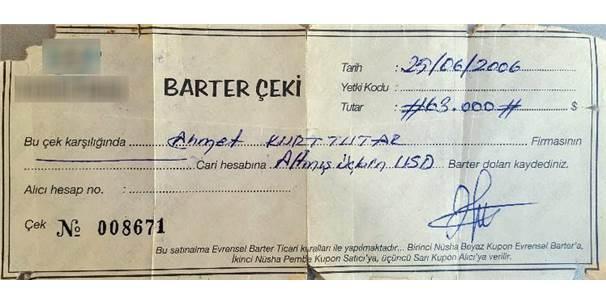 BARTER ÇEKİ
Tarih : 29/06/2006
Yetki Kodu :
Tutar : #63.000# $
Bu çek karşılığında Ahmet KURTTUTAR Firmasının
Cari hesabına Altmış üçbin USD Barter doları kaydediniz.
Alıcı hesap no. :
Çek № 008671
Bu satınalma Evrensel Barter Ticari kuralları ile yapılmaktadır... Birinci Nüsha Beyaz Kupon Evrensel Barter'a,
İkinci Nüsha Pembe Kupon Satıcı'ya, üçüncü Sarı Kupon Alıcı'ya verilir.